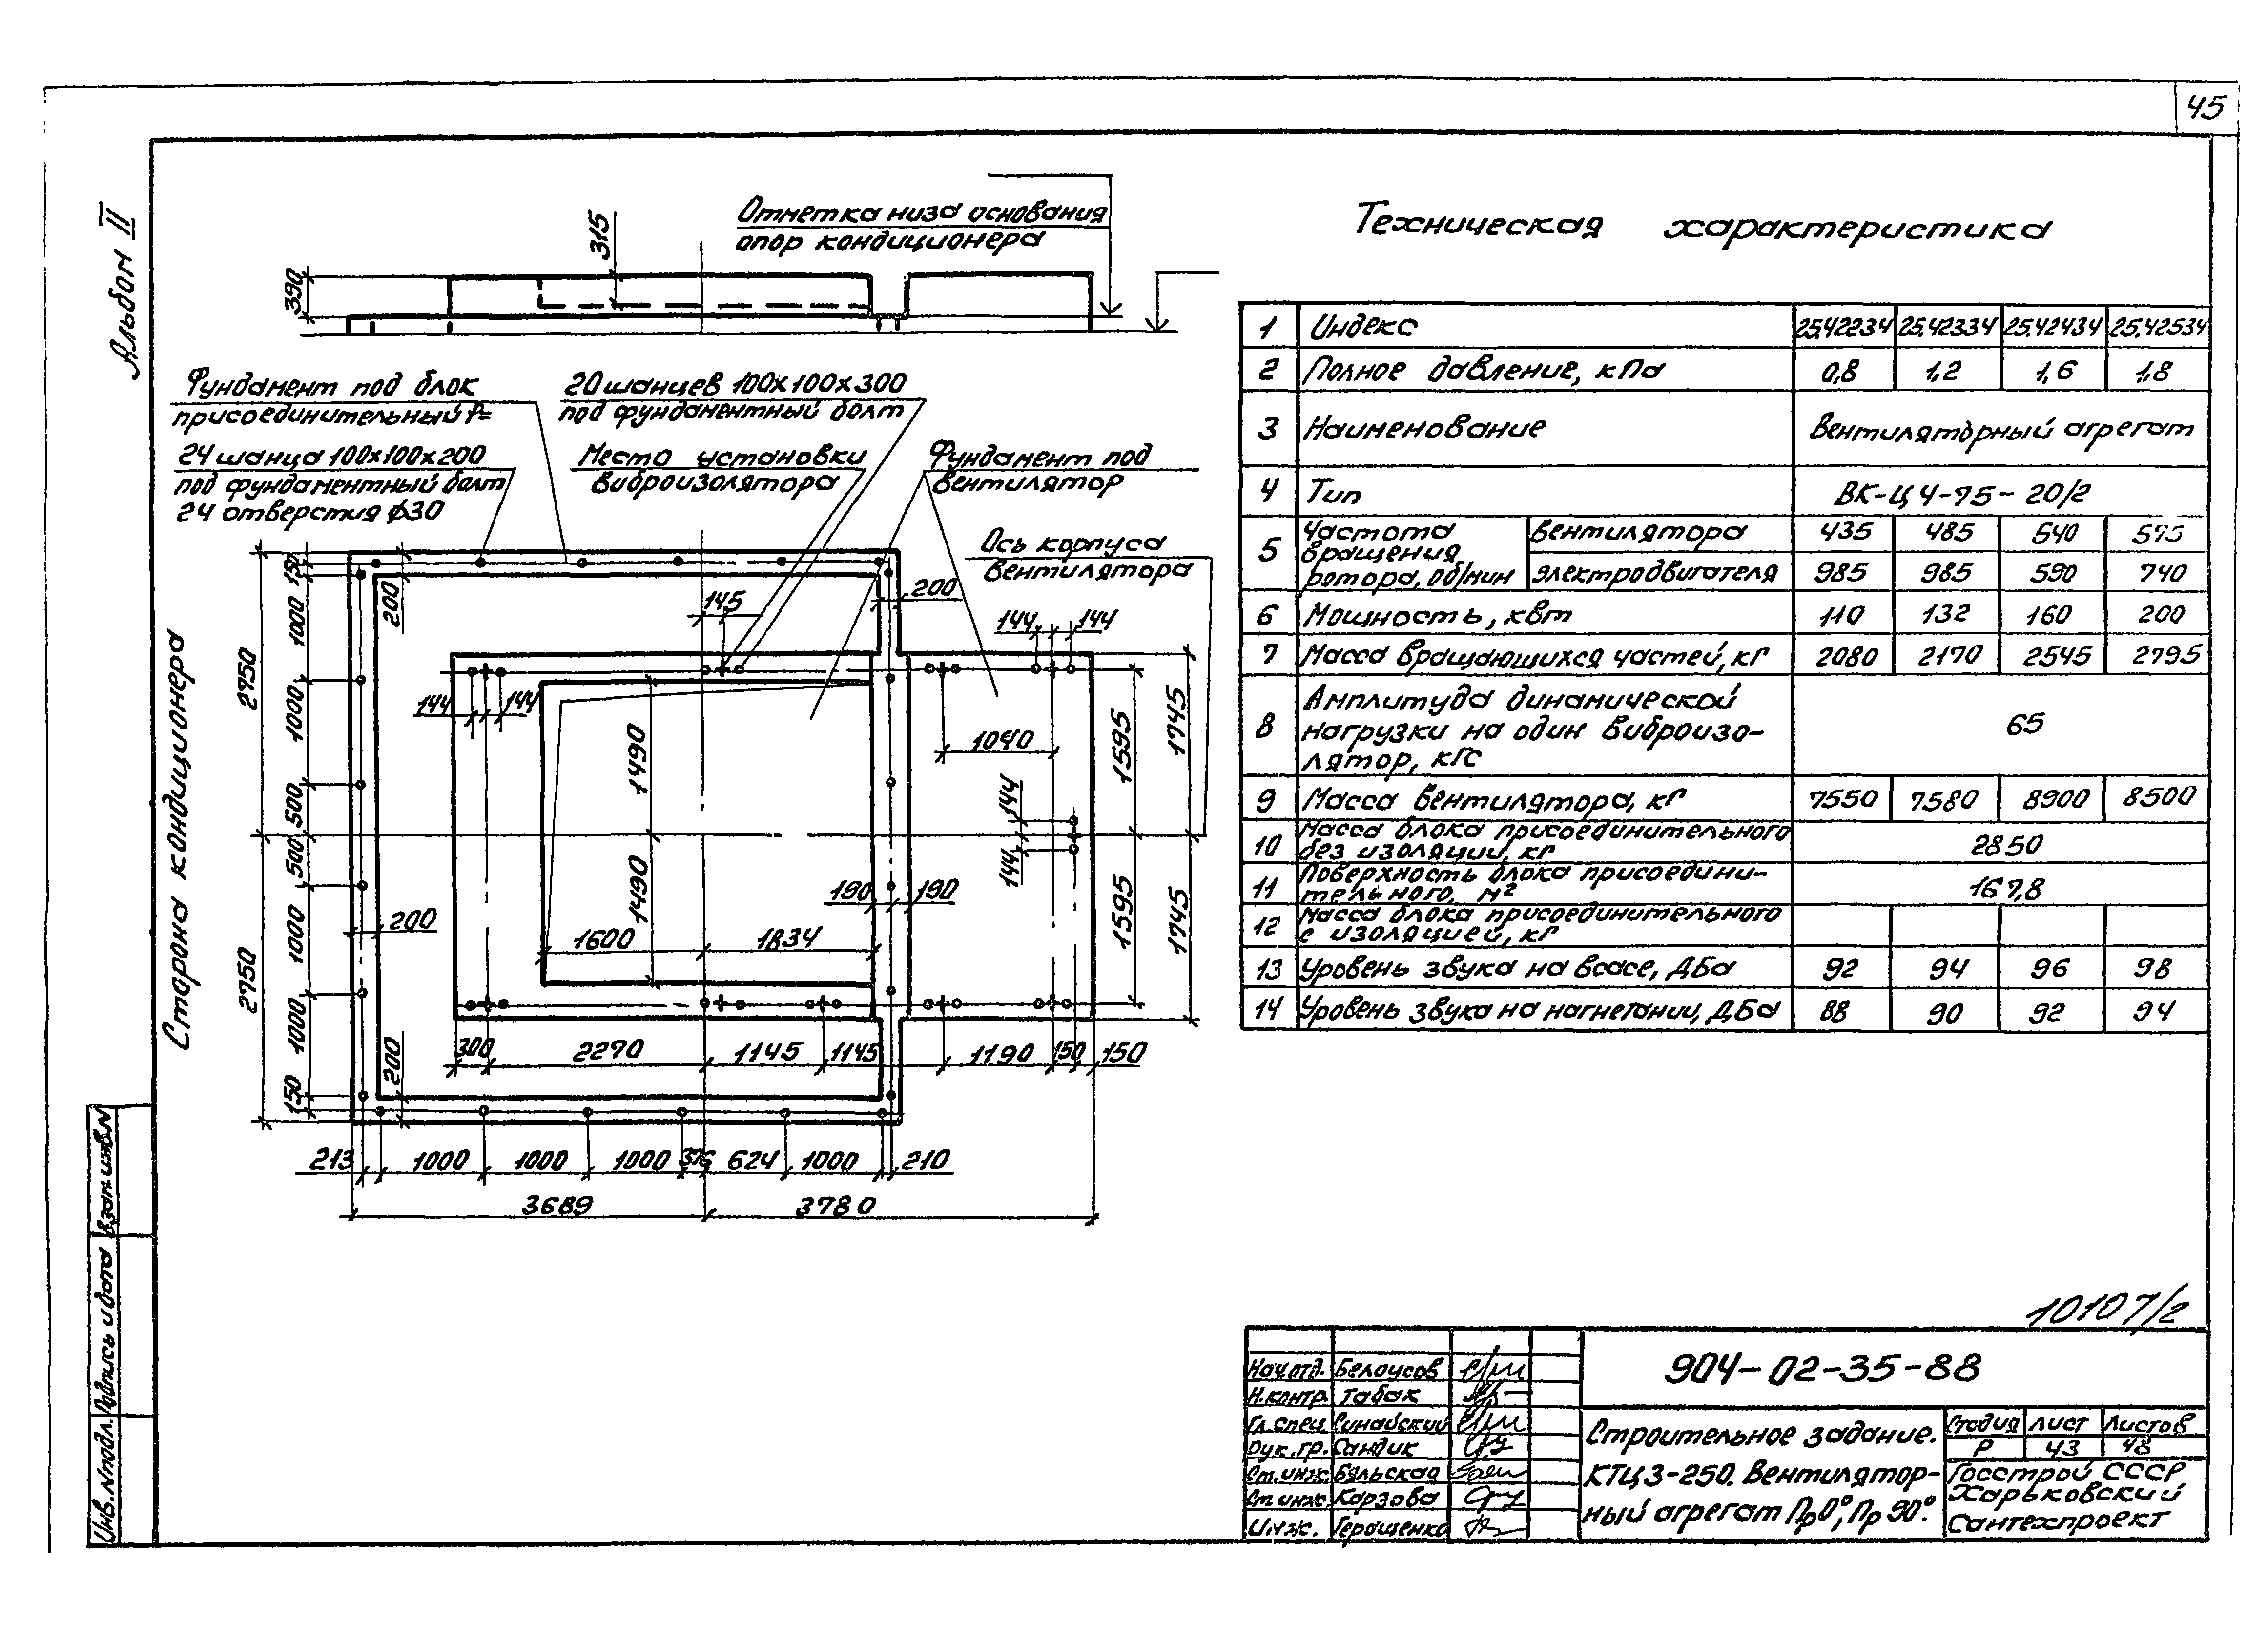 45
Альбом II
Сторона кондиционера
Отметка низа основания
опор кондиционера
315
390
Фундамент под блок
присоединительный
24 шанца 100х100х200
под фундаментный болт
24 отверстия ⌀30
20 шанцев 100х100х300
под фундаментный болт
Место установки
виброизолятора
Фундамент под
вентилятор
Ось корпуса
вентилятора
150
200
145
200
144 144
1000
2750
1000
144 144
1490
1040
1595
1745
500
144
500
144
1490
190 190
1595
1745
200
1600 1834
1000
2750
1000
200
150
300 2270 1145 1145 1190 150 150
213 1000 1000 1000 376 624 1000 210
3689 3780
Техническая характеристика
1 Индекс 25.42234 25.42334 25.42434 25.42534
2 Полное давление, кПа 0,8 1,2 1,6 1,8
3 Наименование Вентиляторный агрегат
4 Тип ВК-Ц 4-75-20/2
5 Частота вращения ротора, об/мин
вентилятора 435 485 540 595
электродвигателя 985 985 590 740
6 Мощность, квт 110 132 160 200
7 Масса вращающихся частей, кг 2080 2170 2545 2795
8 Амплитуда динамической
нагрузки на один виброизо-
лятор, кГс 65
9 Масса вентилятора, кг 7550 7580 8900 8500
10 Масса блока присоединительного
без изоляции, кг 2850
11 Поверхность блока присоедини-
тельного, м² 167,8
12 Масса блока присоединительного
с изоляцией, кг
13 Уровень звука на всасе, ДБа 92 94 96 98
14 Уровень звука на нагнетании, ДБа 88 90 92 94
10107/2
Нач.отд. Белоусов
Н.контр. Табак
Гл.спец. Синайский
Рук.гр. Сандик
Ст.инж. Бяльская
Ст.инж. Карзова
Инж. Геращенко
904-02-35-88
Строительное задание.
КТЦ 3-250. Вентилятор-
ный агрегат Пр 0°; Пр 90°.
Стадия Лист Листов
Р 43 48
Госстрой СССР
Харьковский
Сантехпроект
Инв.№подл. Подпись и дата Взам инв.№